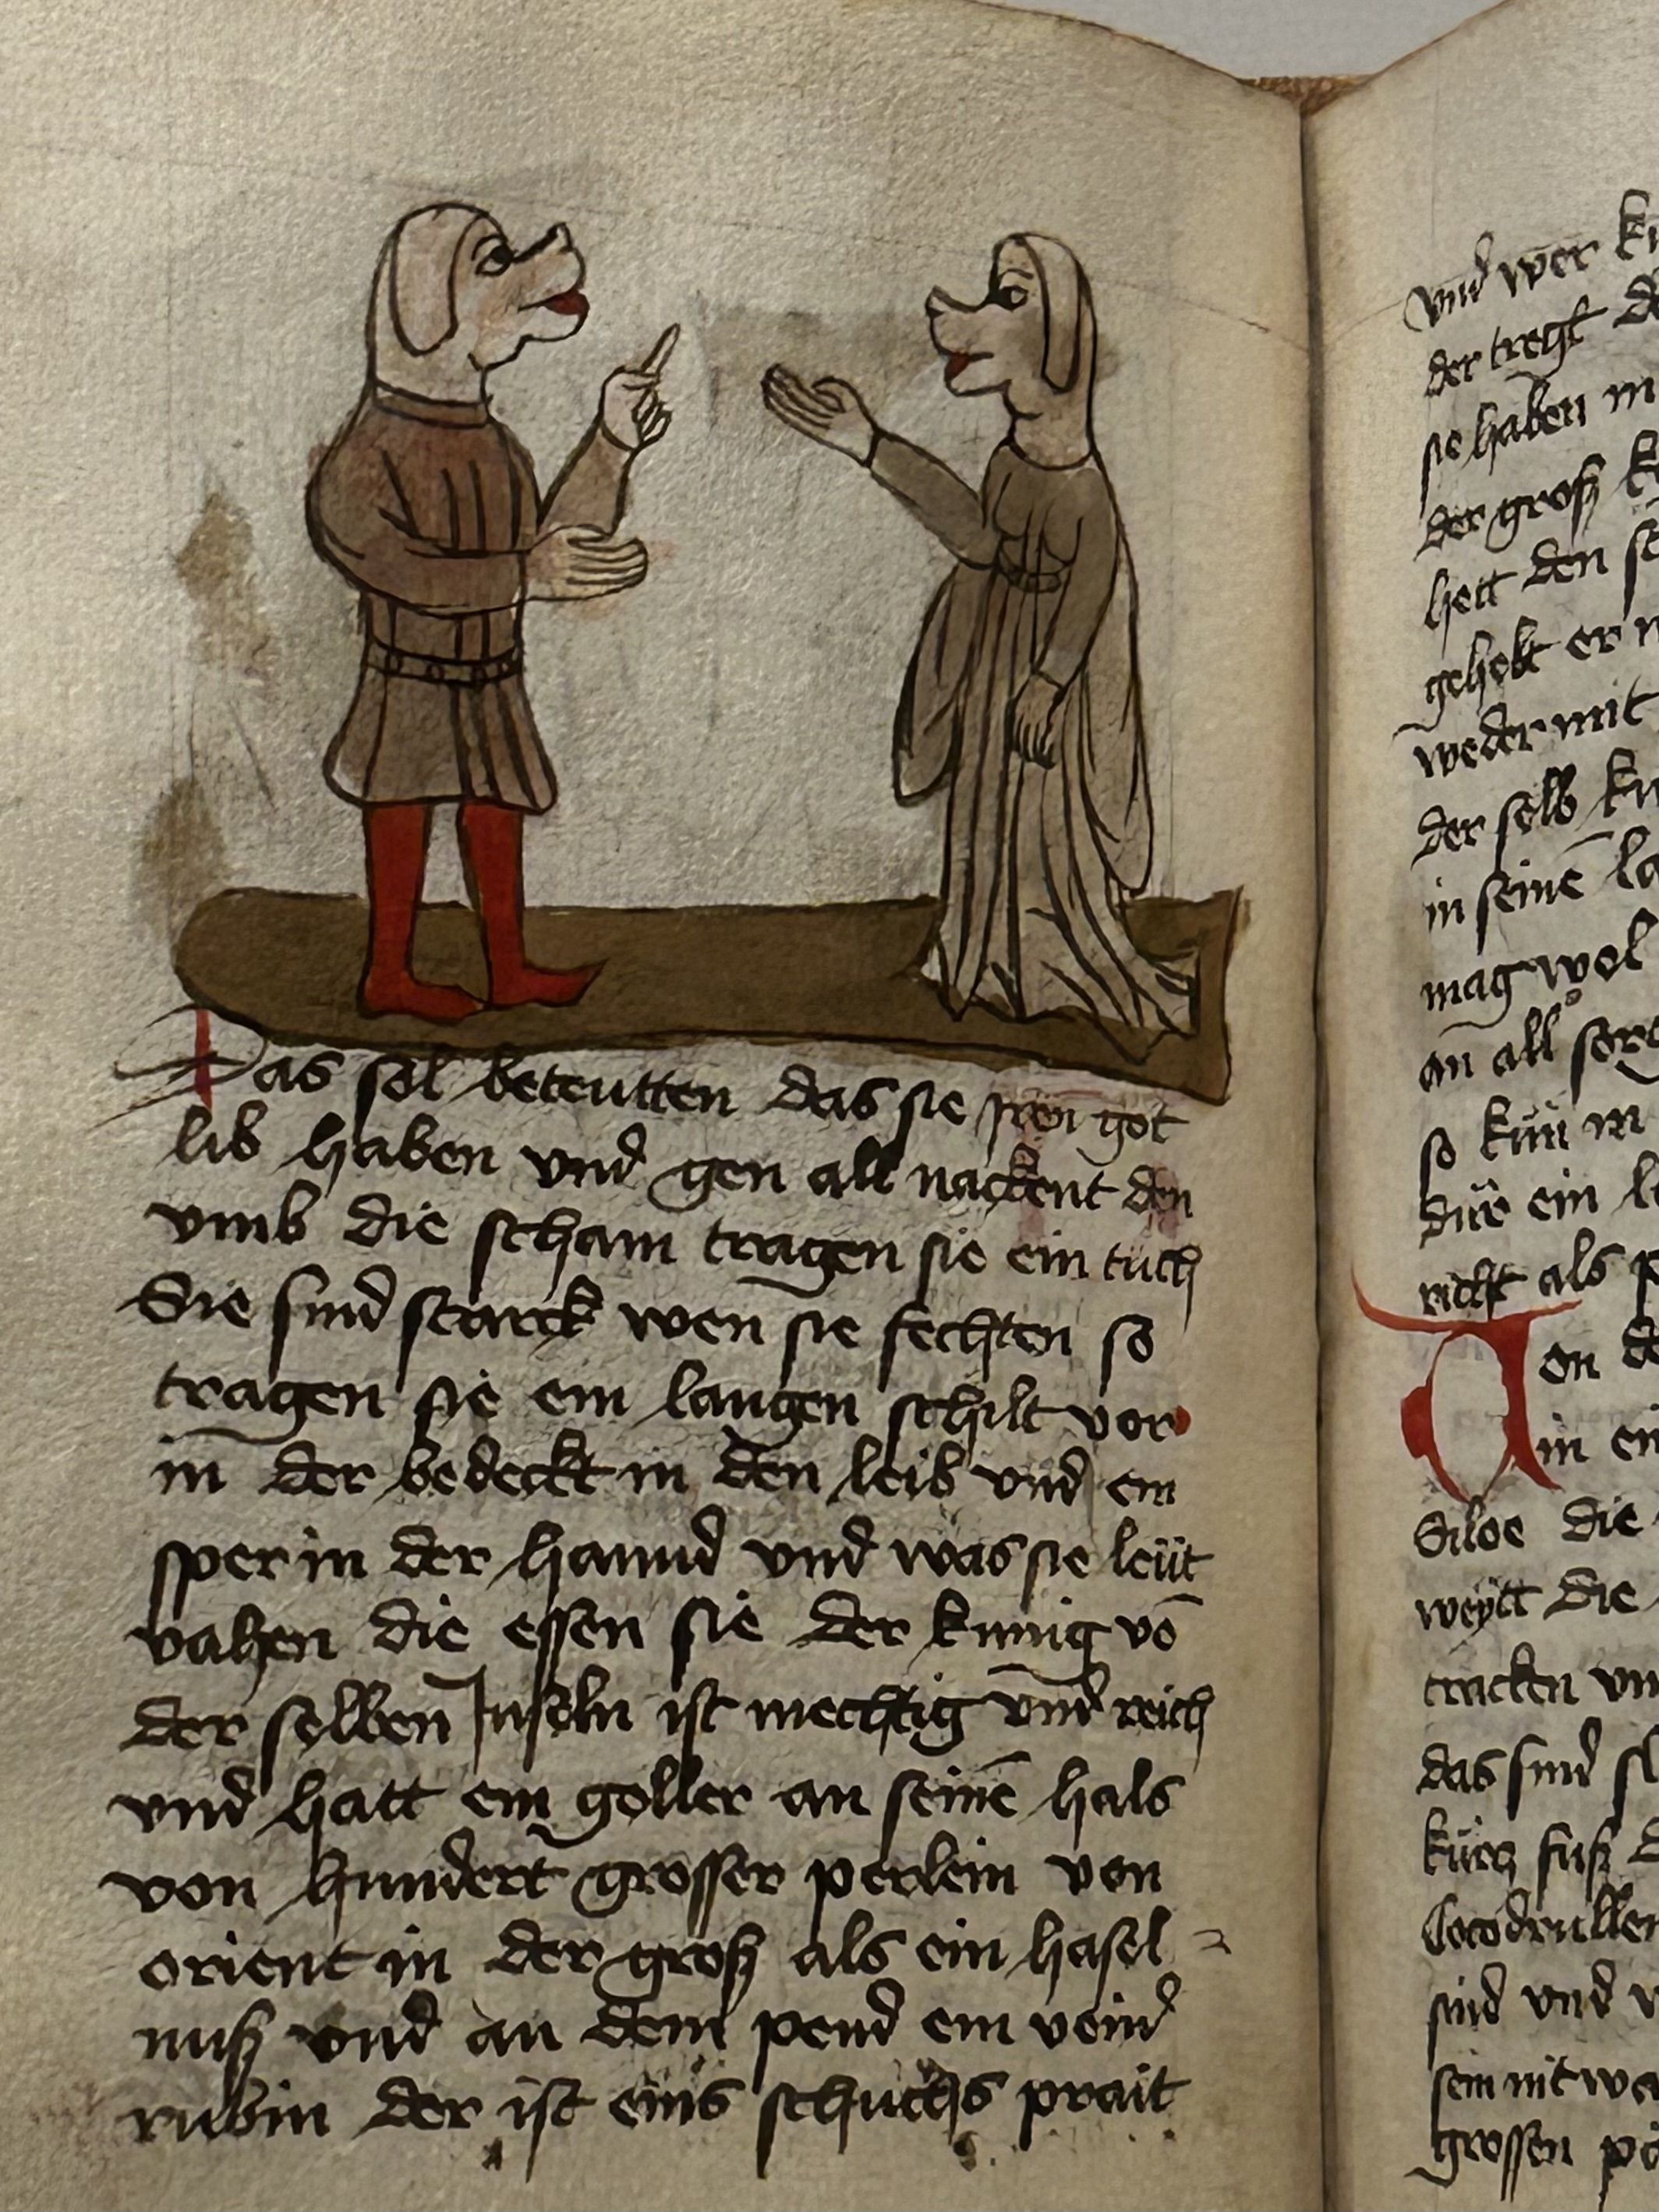 Das sol beteutten das sie iren got
lib haben vnd gen all nackent den
vmb die scham tragen sie ein tuch
Sie sind starck wen sie fechten so
tragen sie ein langen schilt vor
in der bedeckt in den leib vnd ein
sper in der hannd vnd was sie leüt
vahen die essen sie der kunig vō
der selben Inseln ist mechtig vnd reich
vnd hatt ein goller an seinē hals
von hundert grosser perlein von
orient in der groß als ein hasel
nuß vnd an dem pend ein
rubin der ist eins schuchs prait
vnd wer
der tregt
sie haben in
der groß
hett den
gehebt er
weder mit
der selb
in seinē
mag wol
on all
so kün in
die ein
richt als
Uon
in
Siloe die
weytt die
tracken
das sind
fuß
Cocodrullen
sind vnd
sein nit
grossen